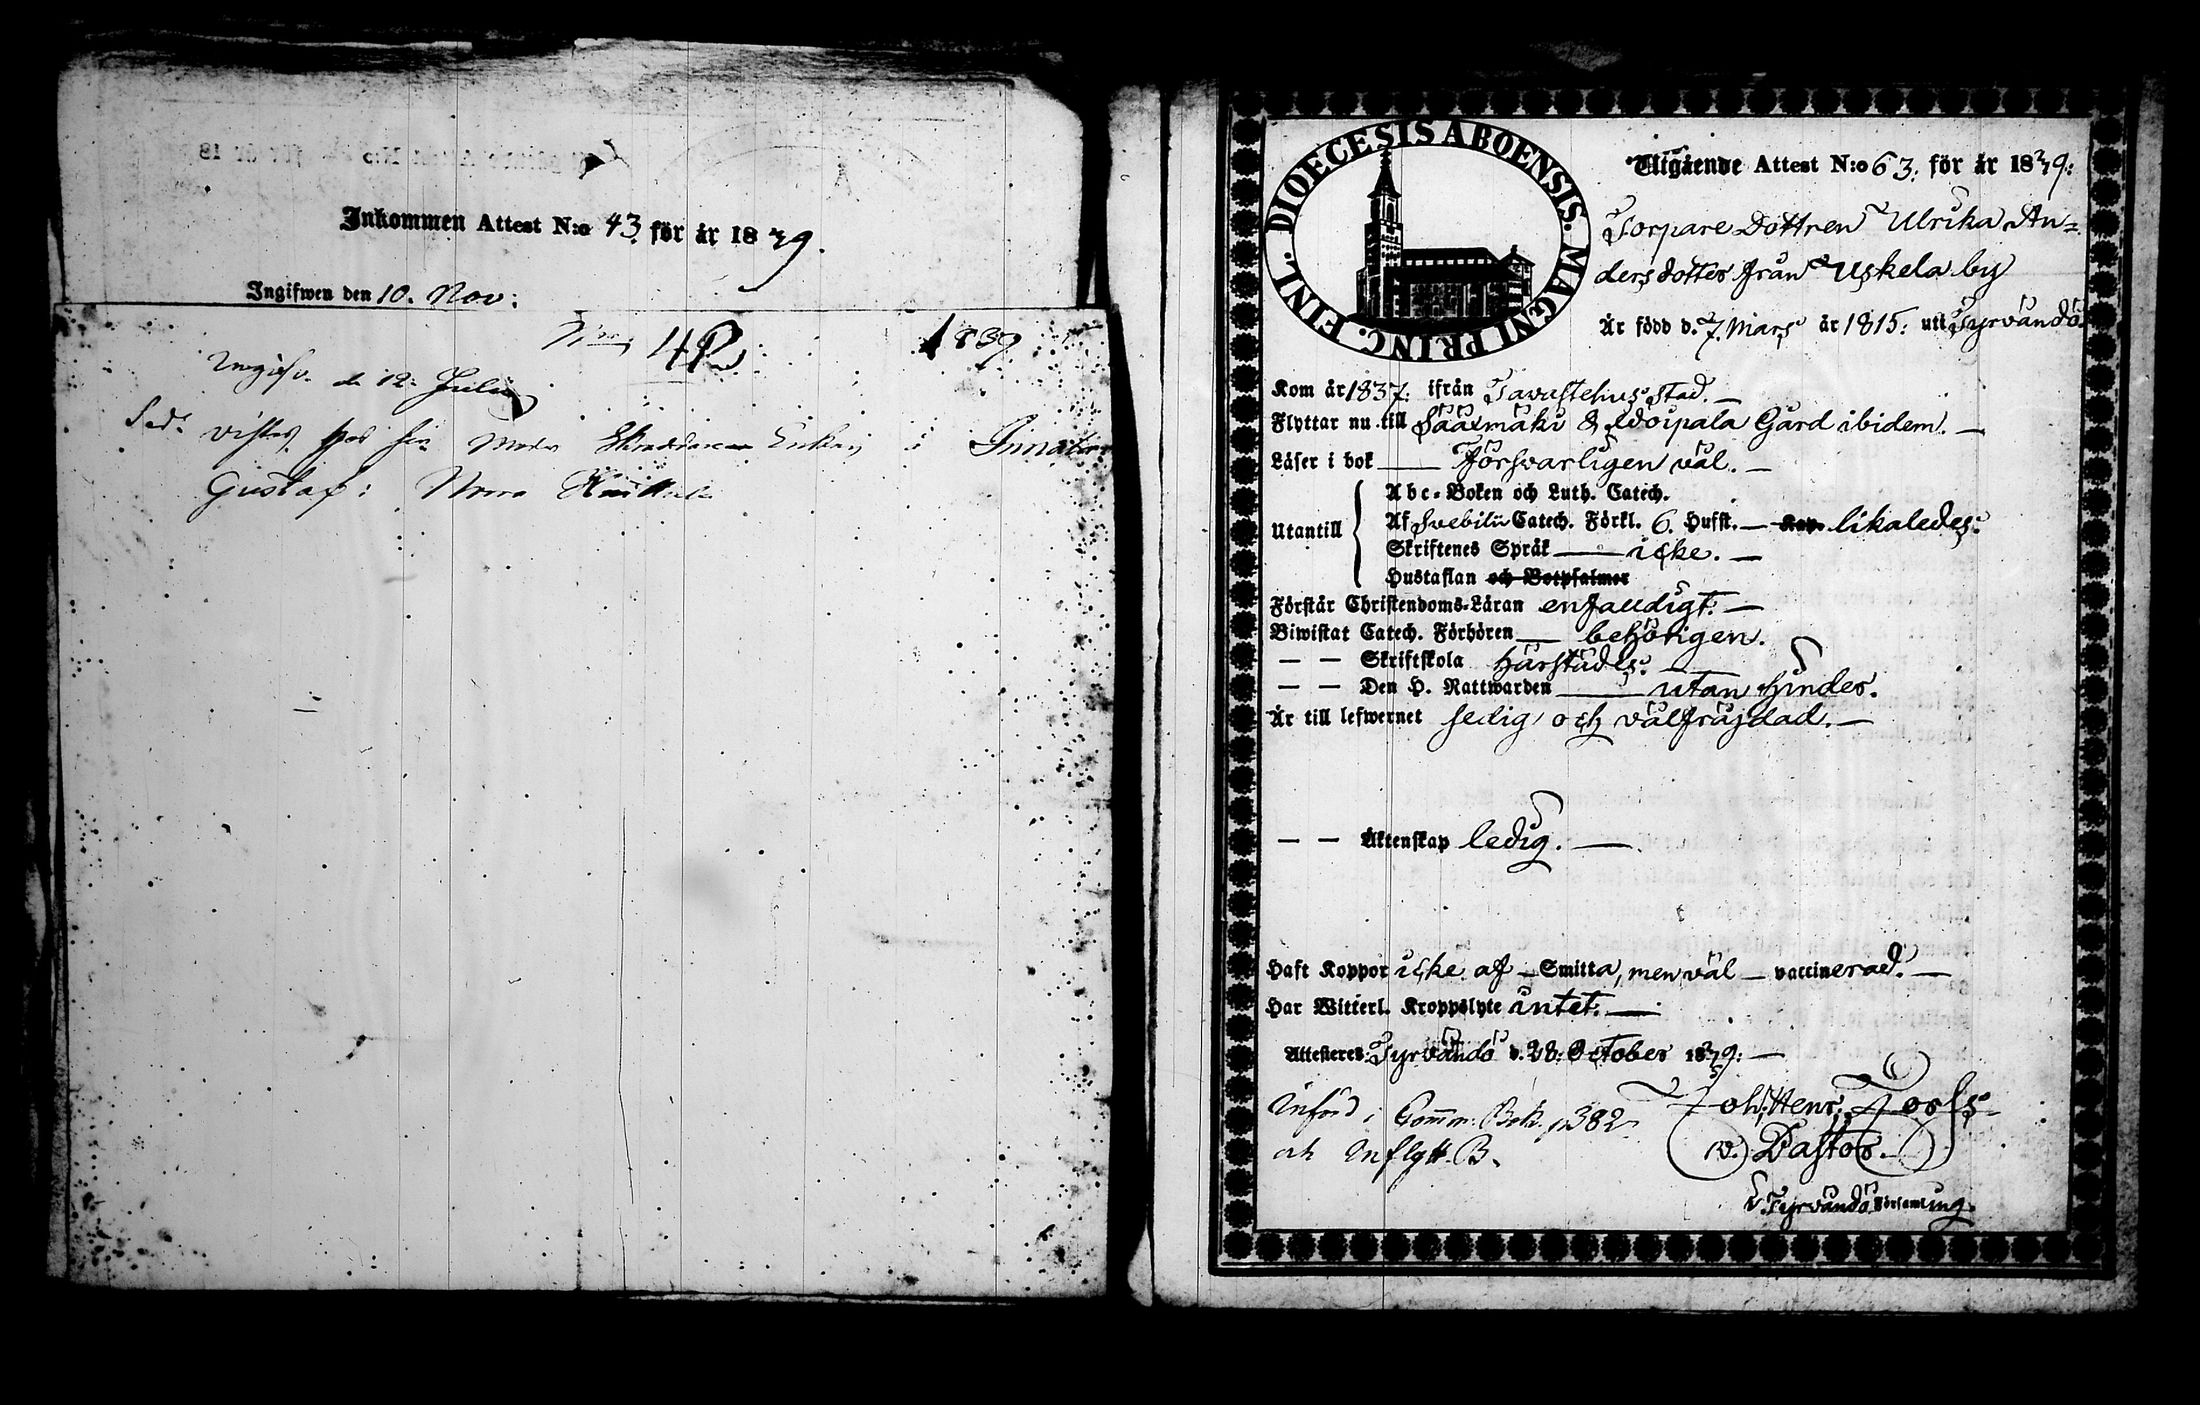 Inkommen Attest N:o 43. för år 1839.
Ingifwen den 10. Nov:
N:o 42 1839
Ingifv. d. 12. Julii
vistas hos sin Moder i
Gustaf:
DIOECESIS ABOENSIS. MAGNI PRINC. FINL.
Utgående Attest N:o 63. för år 1839:
Torpare Dottren Ulrika An=
dersdotter från Uskela by
Är född d. 7. Mars år 1815: uti Tyrvändö.
Kom år 1837: ifrån Tavastehus Stad. —
Flyttar nu till Sääxmäki & Woipala Gård ibidem. —
Läser i bok — Försvarligen väl. —
Utantill
Abc-Boken och Luth. Catech.
Af Svebilii Catech. Förkl. 6. Hufst. — Kap. likaledes.
Skriftenes Språk — icke. —
Hustaflan och Botpsalmer
Förstår Christendoms-Läran enfaldigt. —
Biwistat Catech. Förhören — behörigen.
— — Skriftskola härstädes.
— — Den H. Nattwarden — utan hinder.
Är till lefwernet sedig och välfräjdad. —
— — Äktenskap ledig. —
Haft Koppor icke af — Smitta, men väl — vaccinerad. —
Har Witterl. Kroppslyte intet. —
Attesteres: Tyrvändö d. 28: October 1839: —
Införd i Comm: Bok. p 382
och Inflytt. B.
Joh: Henr:
v. Pastor.
i Tyrvändö Församling.